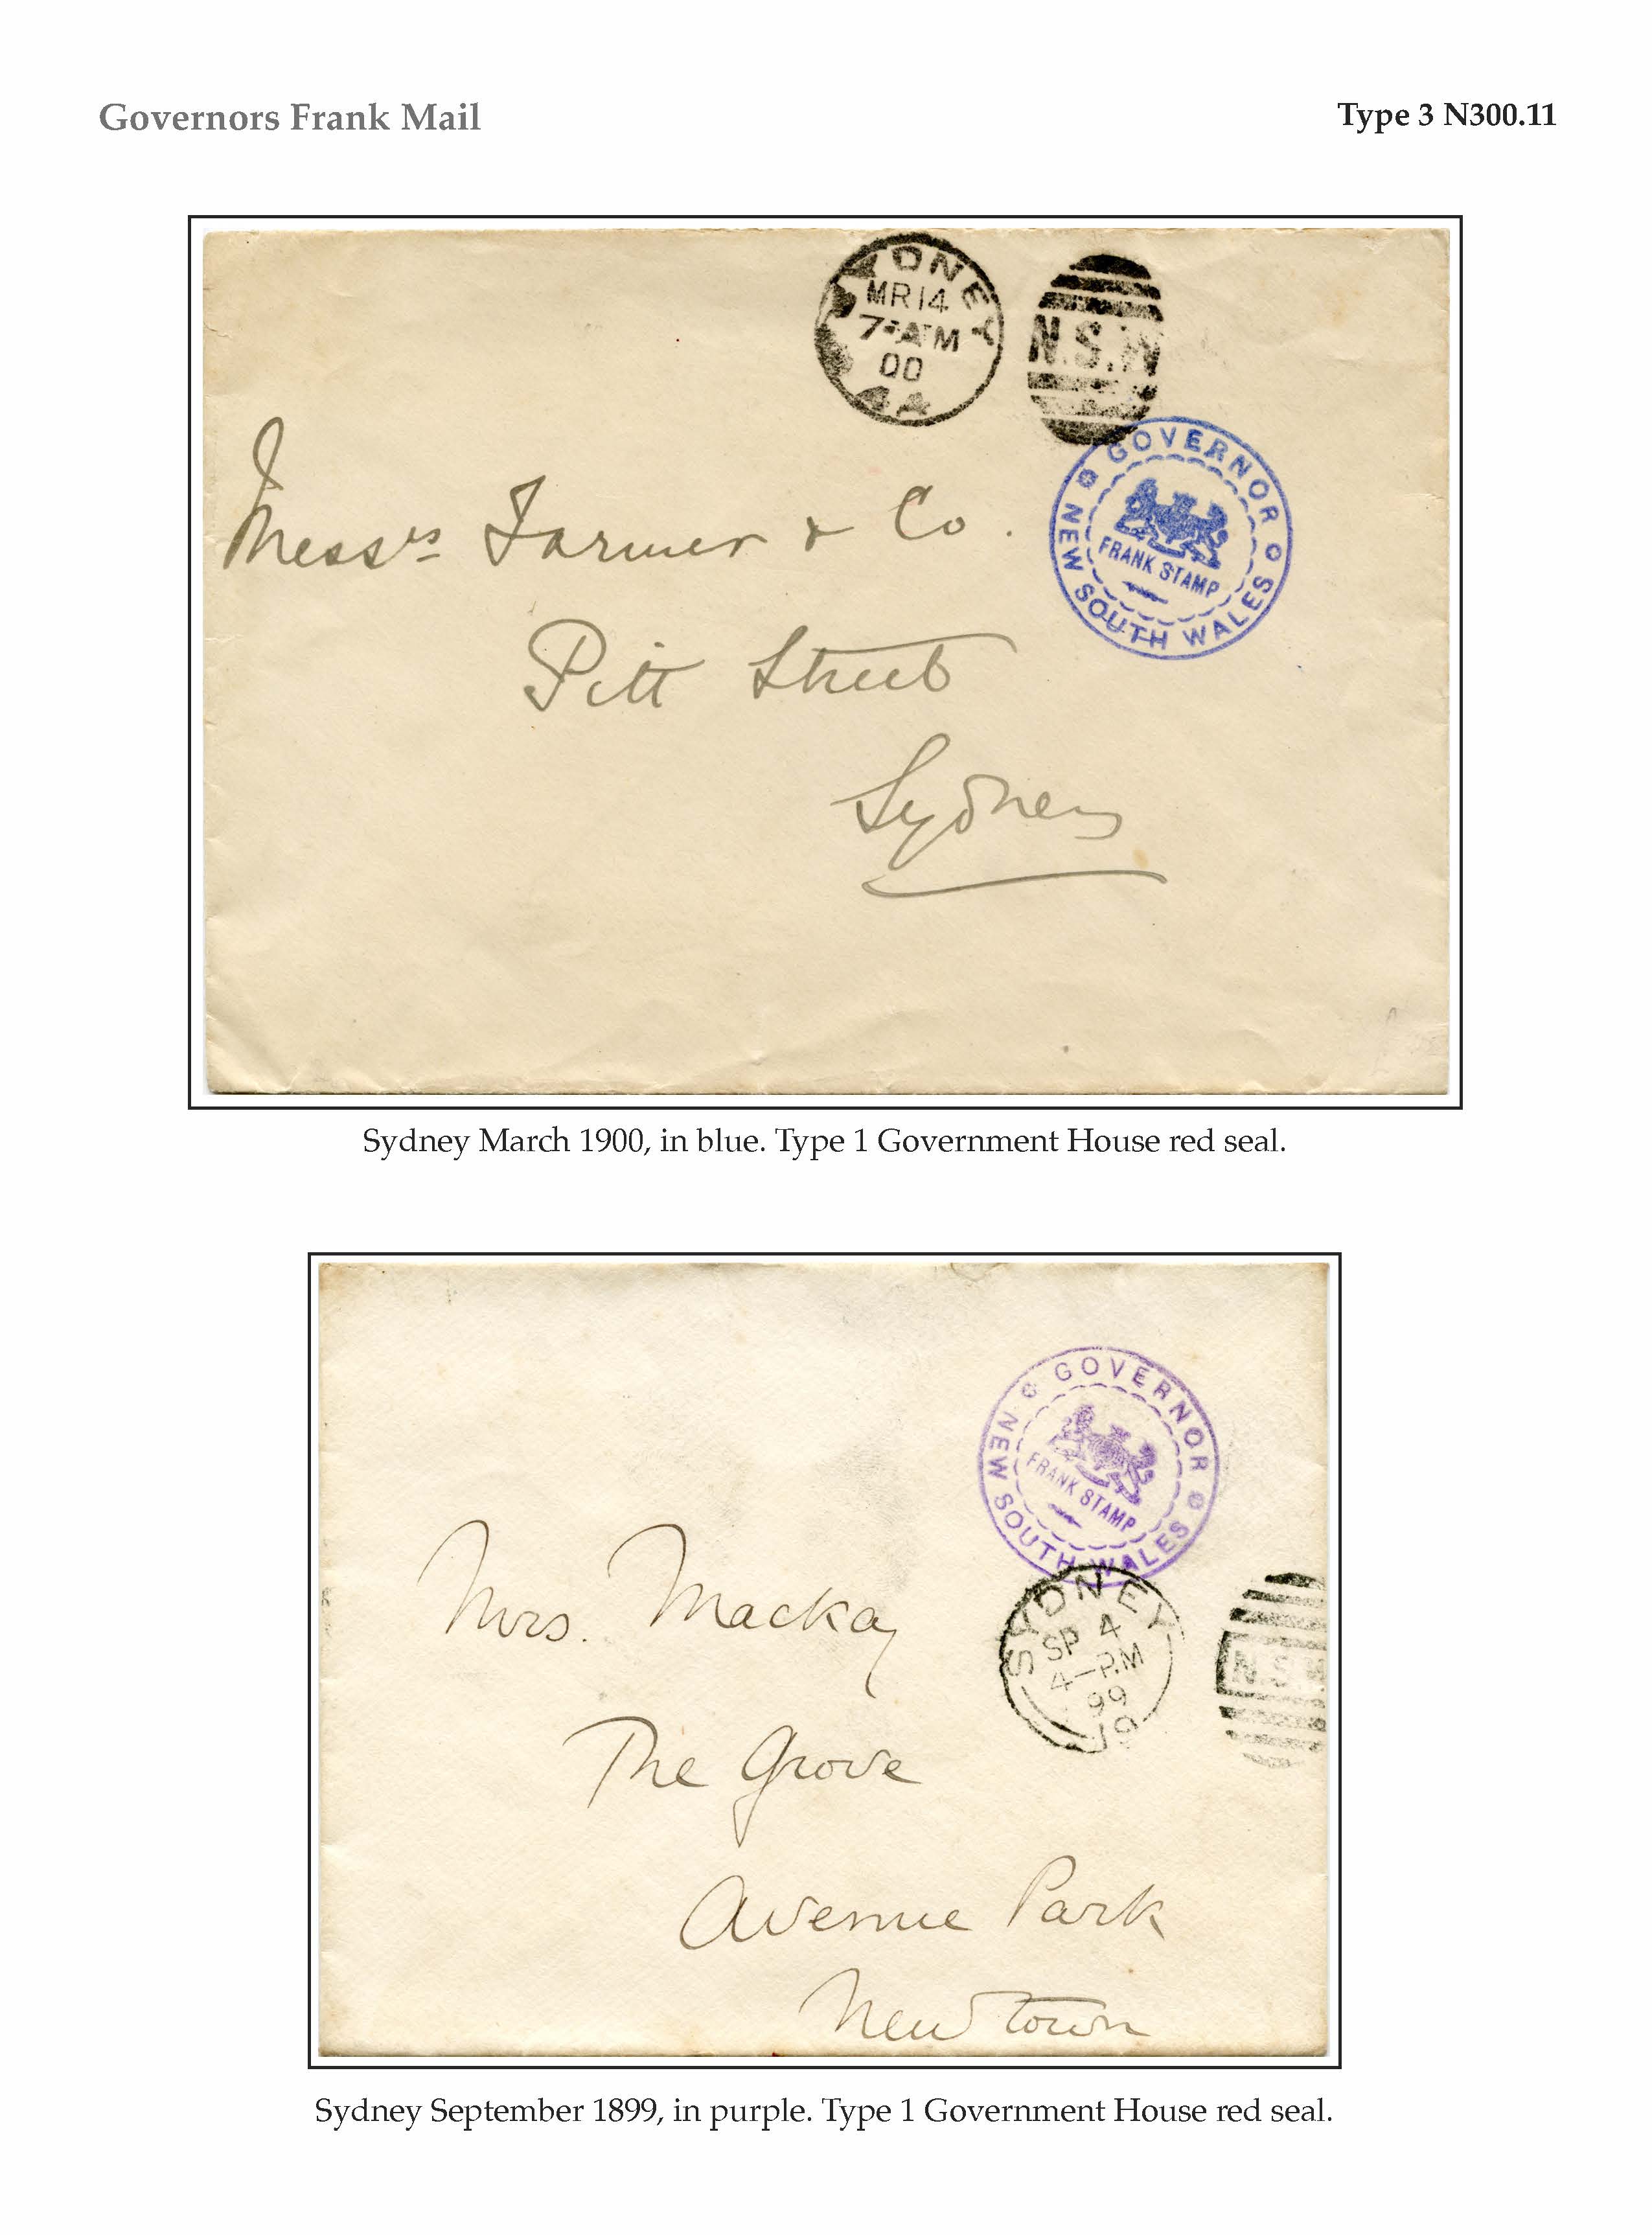 Governors Frank Mail
Type 3 N300.11
SYDNEY
MR 14
7-AM
00
N.S.W
GOVERNOR
NEW SOUTH WALES
FRANK STAMP
Messrs Farmer & Co.
Pitt Street
Sydney
Sydney March 1900, in blue. Type 1 Government House red seal.
GOVERNOR
NEW SOUTH WALES
FRANK STAMP
SYDNEY
SP 4
4-P.M
99
N.S.W
Mrs. Mackay
The Grove
Avenue Park
Newtown
Sydney September 1899, in purple. Type 1 Government House red seal.